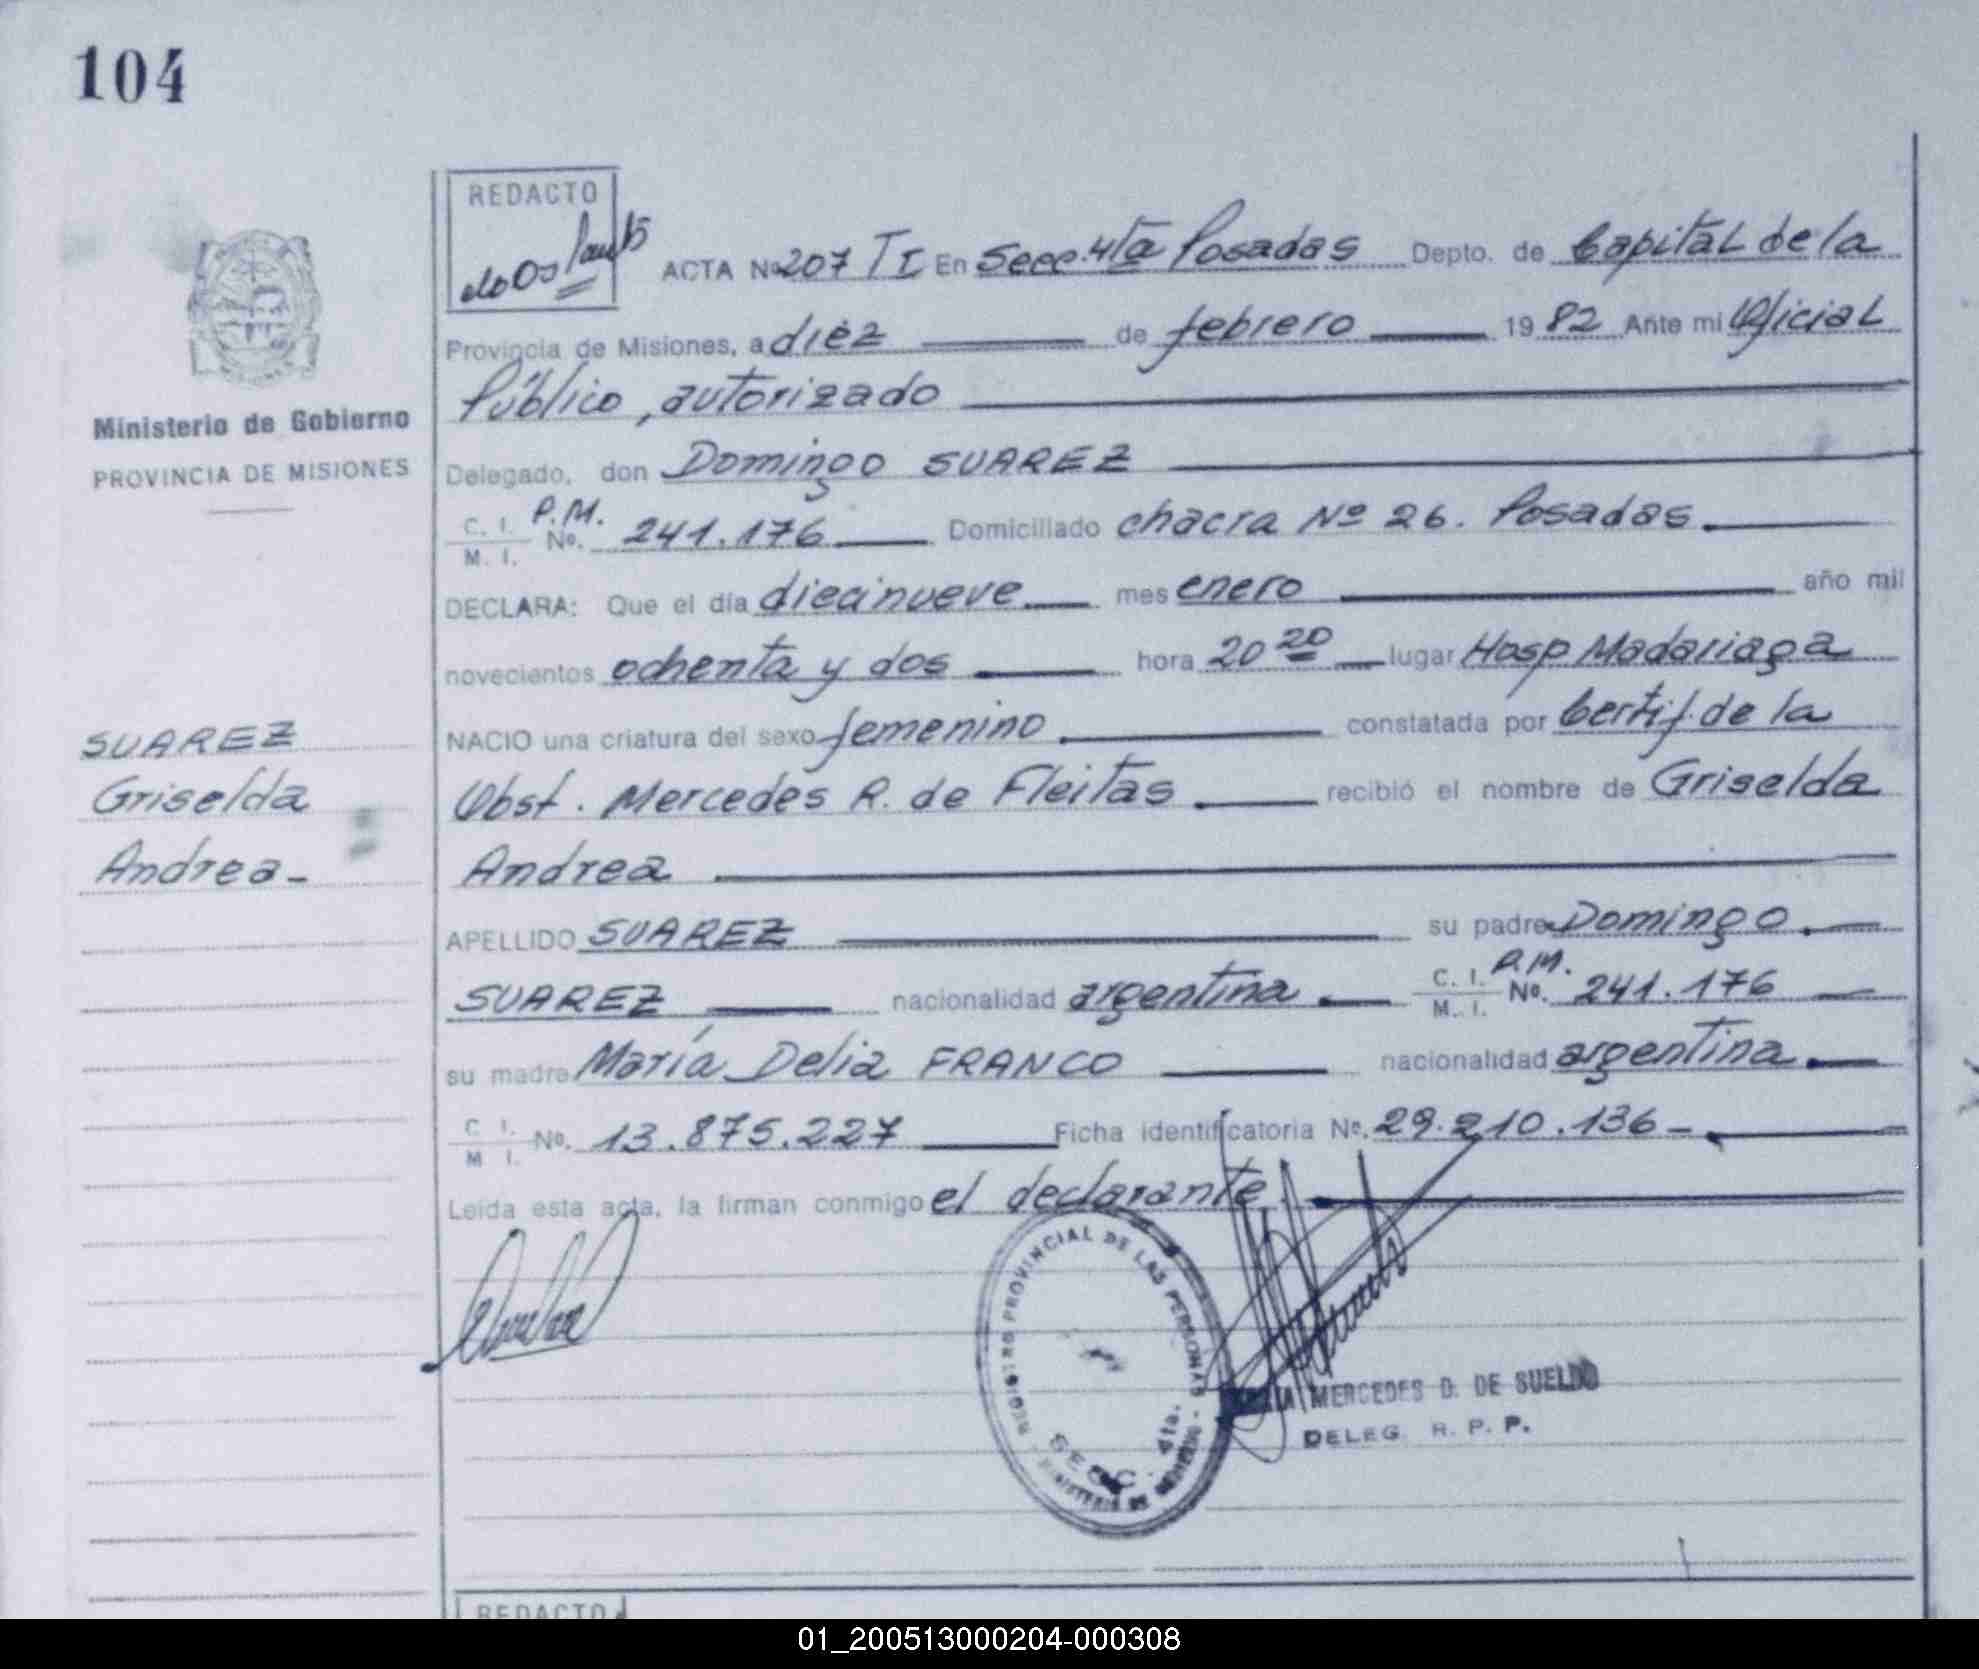 104
REDACTO
ACTA Nº 207 T I En Secc. 4ta Posadas Depto. de Capital de la
Provincia de Misiones, a diez de febrero 19 82 Ante mi Oficial
Público, autorizado
Ministerio de Gobierno
PROVINCIA DE MISIONES
Delegado, don Domingo SUAREZ
C. I. P.M.
M. I. Nº. 241.176 Domiciliado chacra Nº 26. Posadas.
DECLARA: Que el día diecinueve mes enero año mil
novecientos ochenta y dos hora 20 20 lugar Hosp Madariaga
NACIO una criatura del sexo femenino constatada por Certif. de la
Obst. Mercedes R. de Fleitas recibió el nombre de Griselda
Andrea
SUAREZ
Griselda
Andrea-
APELLIDO SUAREZ su padre Domingo.
SUAREZ nacionalidad argentina C. I. M. I. P.M. Nº. 241.176
su madre María Delia FRANCO nacionalidad argentina.
C. I. M. I. Nº. 13.875.227 Ficha identificatoria Nº. 29.210.136-
Leída esta acta, la firman conmigo el declarante.
REGISTRO PROVINCIAL DE LAS PERSONAS - MINISTERIO DE GOBIERNO -
SECC. 4ta.
MERCEDES D. DE SUELDO
DELEG. R. P. P.
REDACTO
01_200513000204-000308